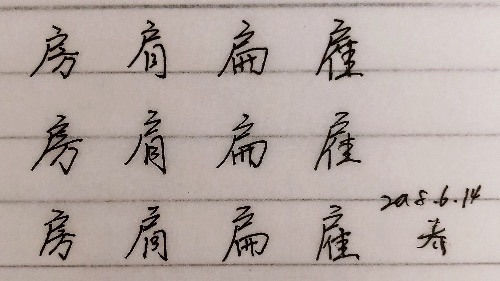 房 肩 扁 雇
房 肩 扁 雇
房 肩 扁 雇
2018.6.14
春